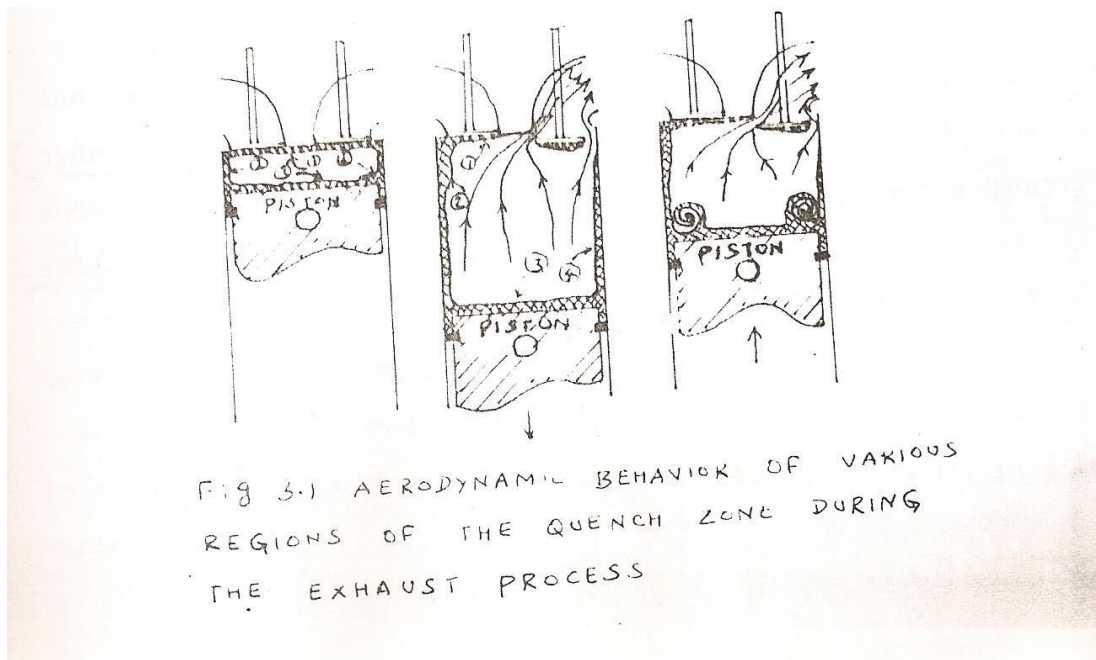 PISTON
①
②
③ ④
PISTON
PISTON
Fig 3.1 AERODYNAMIC BEHAVIOR OF VARIOUS
REGIONS OF THE QUENCH ZONE DURING
THE EXHAUST PROCESS